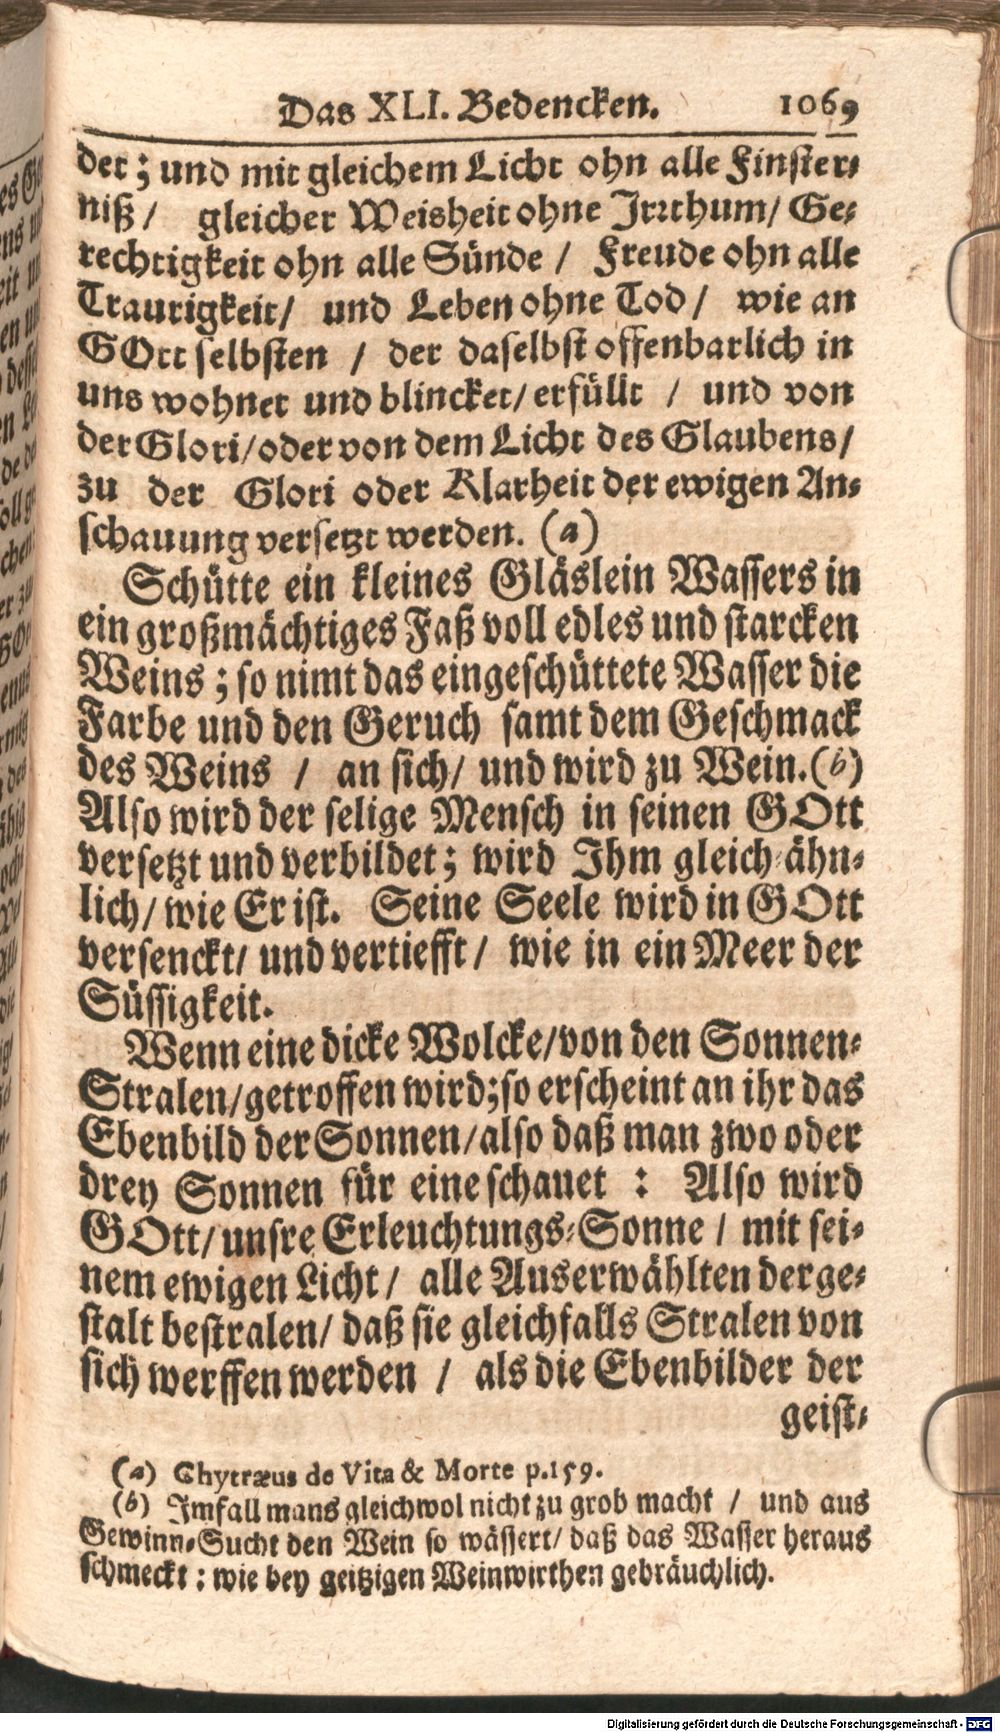 Das XLI. Bedencken. 1069
det; und mit gleichem Licht ohn alle Finster-
niß / gleicher Weisheit ohne Irrthum/ Ge-
rechtigkeit ohn alle Sünde / Freude ohn alle
Traurigkeit/ und Leben ohne Tod/ wie an
GOtt selbsten / der daselbst offenbarlich in
uns wohnet und blincket/ erfüllt / und von
der Glori/ oder von dem Licht des Glaubens/
zu der Glori oder Klarheit der ewigen An-
schauung versetzt werden. (a)
Schütte ein kleines Gläslein Wassers in
ein großmächtiges Faß voll edles und starcken
Weins; so nimt das eingeschüttete Wasser die
Farbe und den Geruch samt dem Geschmack
des Weins / an sich/ und wird zu Wein. (b)
Also wird der selige Mensch in seinen GOtt
versetzt und verbildet; wird Ihm gleich-ähn-
lich/ wie Er ist. Seine Seele wird in GOtt
versenckt/ und vertiefft/ wie in ein Meer der
Süssigkeit.
Wenn eine dicke Wolcke/ von den Sonnen-
Stralen/ getroffen wird; so erscheint an ihr das
Ebenbild der Sonnen/ also daß man zwo oder
drey Sonnen für eine schauet : Also wird
GOtt/ unsre Erleuchtungs-Sonne / mit sei-
nem ewigen Licht/ alle Auserwählten derge-
stalt bestralen/ daß sie gleichfalls Stralen von
sich werffen werden / als die Ebenbilder der
geist-
(a) Chytræus de Vita & Morte p.159.
(b) Imfall mans gleichwol nicht zu grob macht / und aus
Gewinn-Sucht den Wein so wässert/ daß das Wasser heraus
schmeckt : wie bey geitzigen Weinwirthen gebräuchlich.
Digitalisierung gefördert durch die Deutsche Forschungsgemeinschaft - DFG